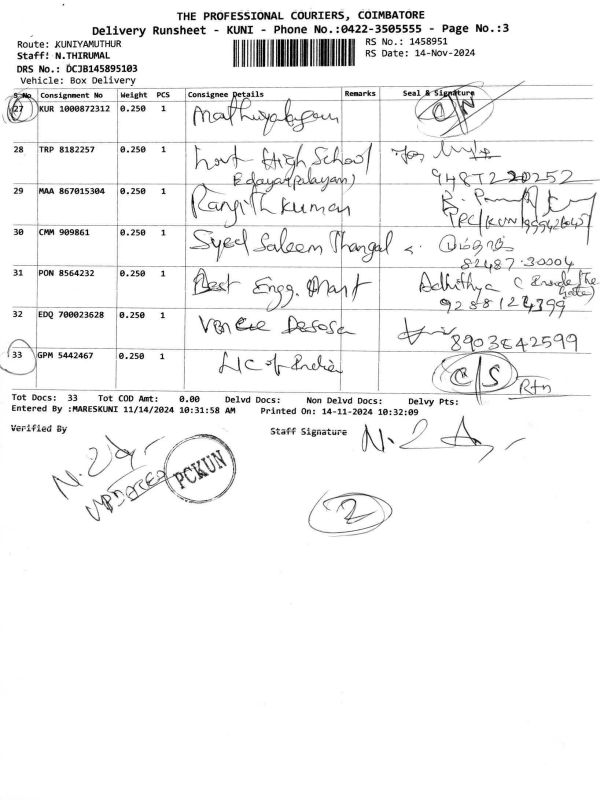 THE PROFESSIONAL COURIERS, COIMBATORE
Delivery Runsheet - KUNI - Phone No.:0422-3505555 - Page No.:3
Route: KUNIYAMUTHUR
RS No.: 1458951
Staff: N.THIRUMAL
RS Date: 14-Nov-2024
DRS No.: DCJB145895103
Vehicle: Box Delivery
S.No. Consignment No Weight PCS Consignee Details Remarks Seal & Signature
27 KUR 1000872312 0.250 1 Mathiyalagan
28 TRP 8182257 0.250 1 Govt High School
Edayarpalayam)
94872 20252
29 MAA 867015304 0.250 1 Ranjith Kumar
30 CMM 909861 0.250 1 Syed Saleem Thangal
82487-30004
31 PON 8564232 0.250 1 Best Engg. Mart Adhithya (Inside the
Gate)
9288124399
32 EDQ 700023628 0.250 1
8903842599
33 GPM 5442467 0.250 1 LIC of India C/S Rtn
Tot Docs: 33 Tot COD Amt: 0.00 Delvd Docs: Non Delvd Docs: Delvy Pts:
Entered By :MARESKUNI 11/14/2024 10:31:58 AM Printed On: 14-11-2024 10:32:09
Verified By
Staff Signature
UPDATED
PCKUN
2